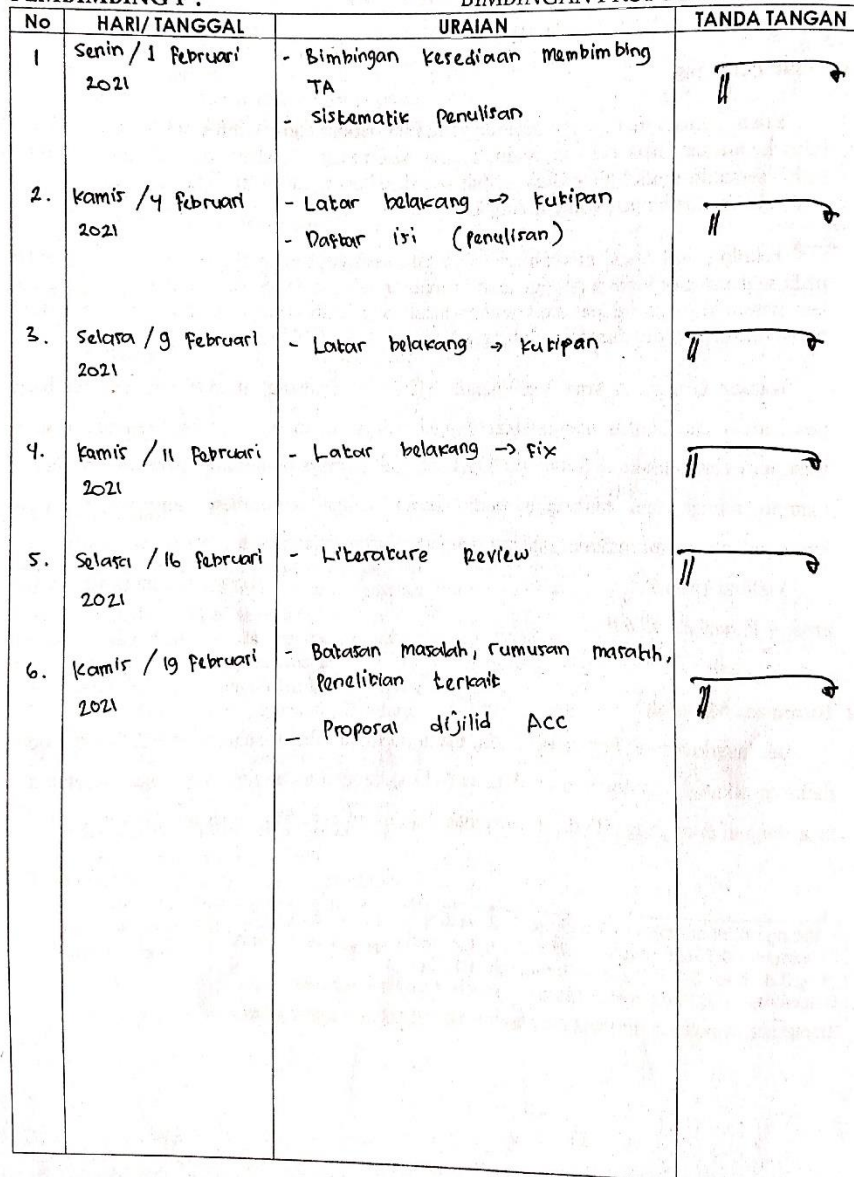 No HARI/ TANGGAL URAIAN TANDA TANGAN
1 Senin / 1 Februari - Bimbingan kesediaan Membimbing
2021 TA
- sistematik penulisan
2. kamis / 4 Februari - Latar belakang → kutipan
2021 - Daftar isi (penulisan)
3. Selasa / 9 Februari - Latar belakang → kutipan
2021
4. kamis / 11 Februari - Latar belakang → Fix
2021
5. Selasa / 16 Februari - Literature Review
2021
6. Kamis / 19 Februari - Batasan masalah, rumusan masalah,
2021 Penelitian terkait
- Proposal dijilid Acc